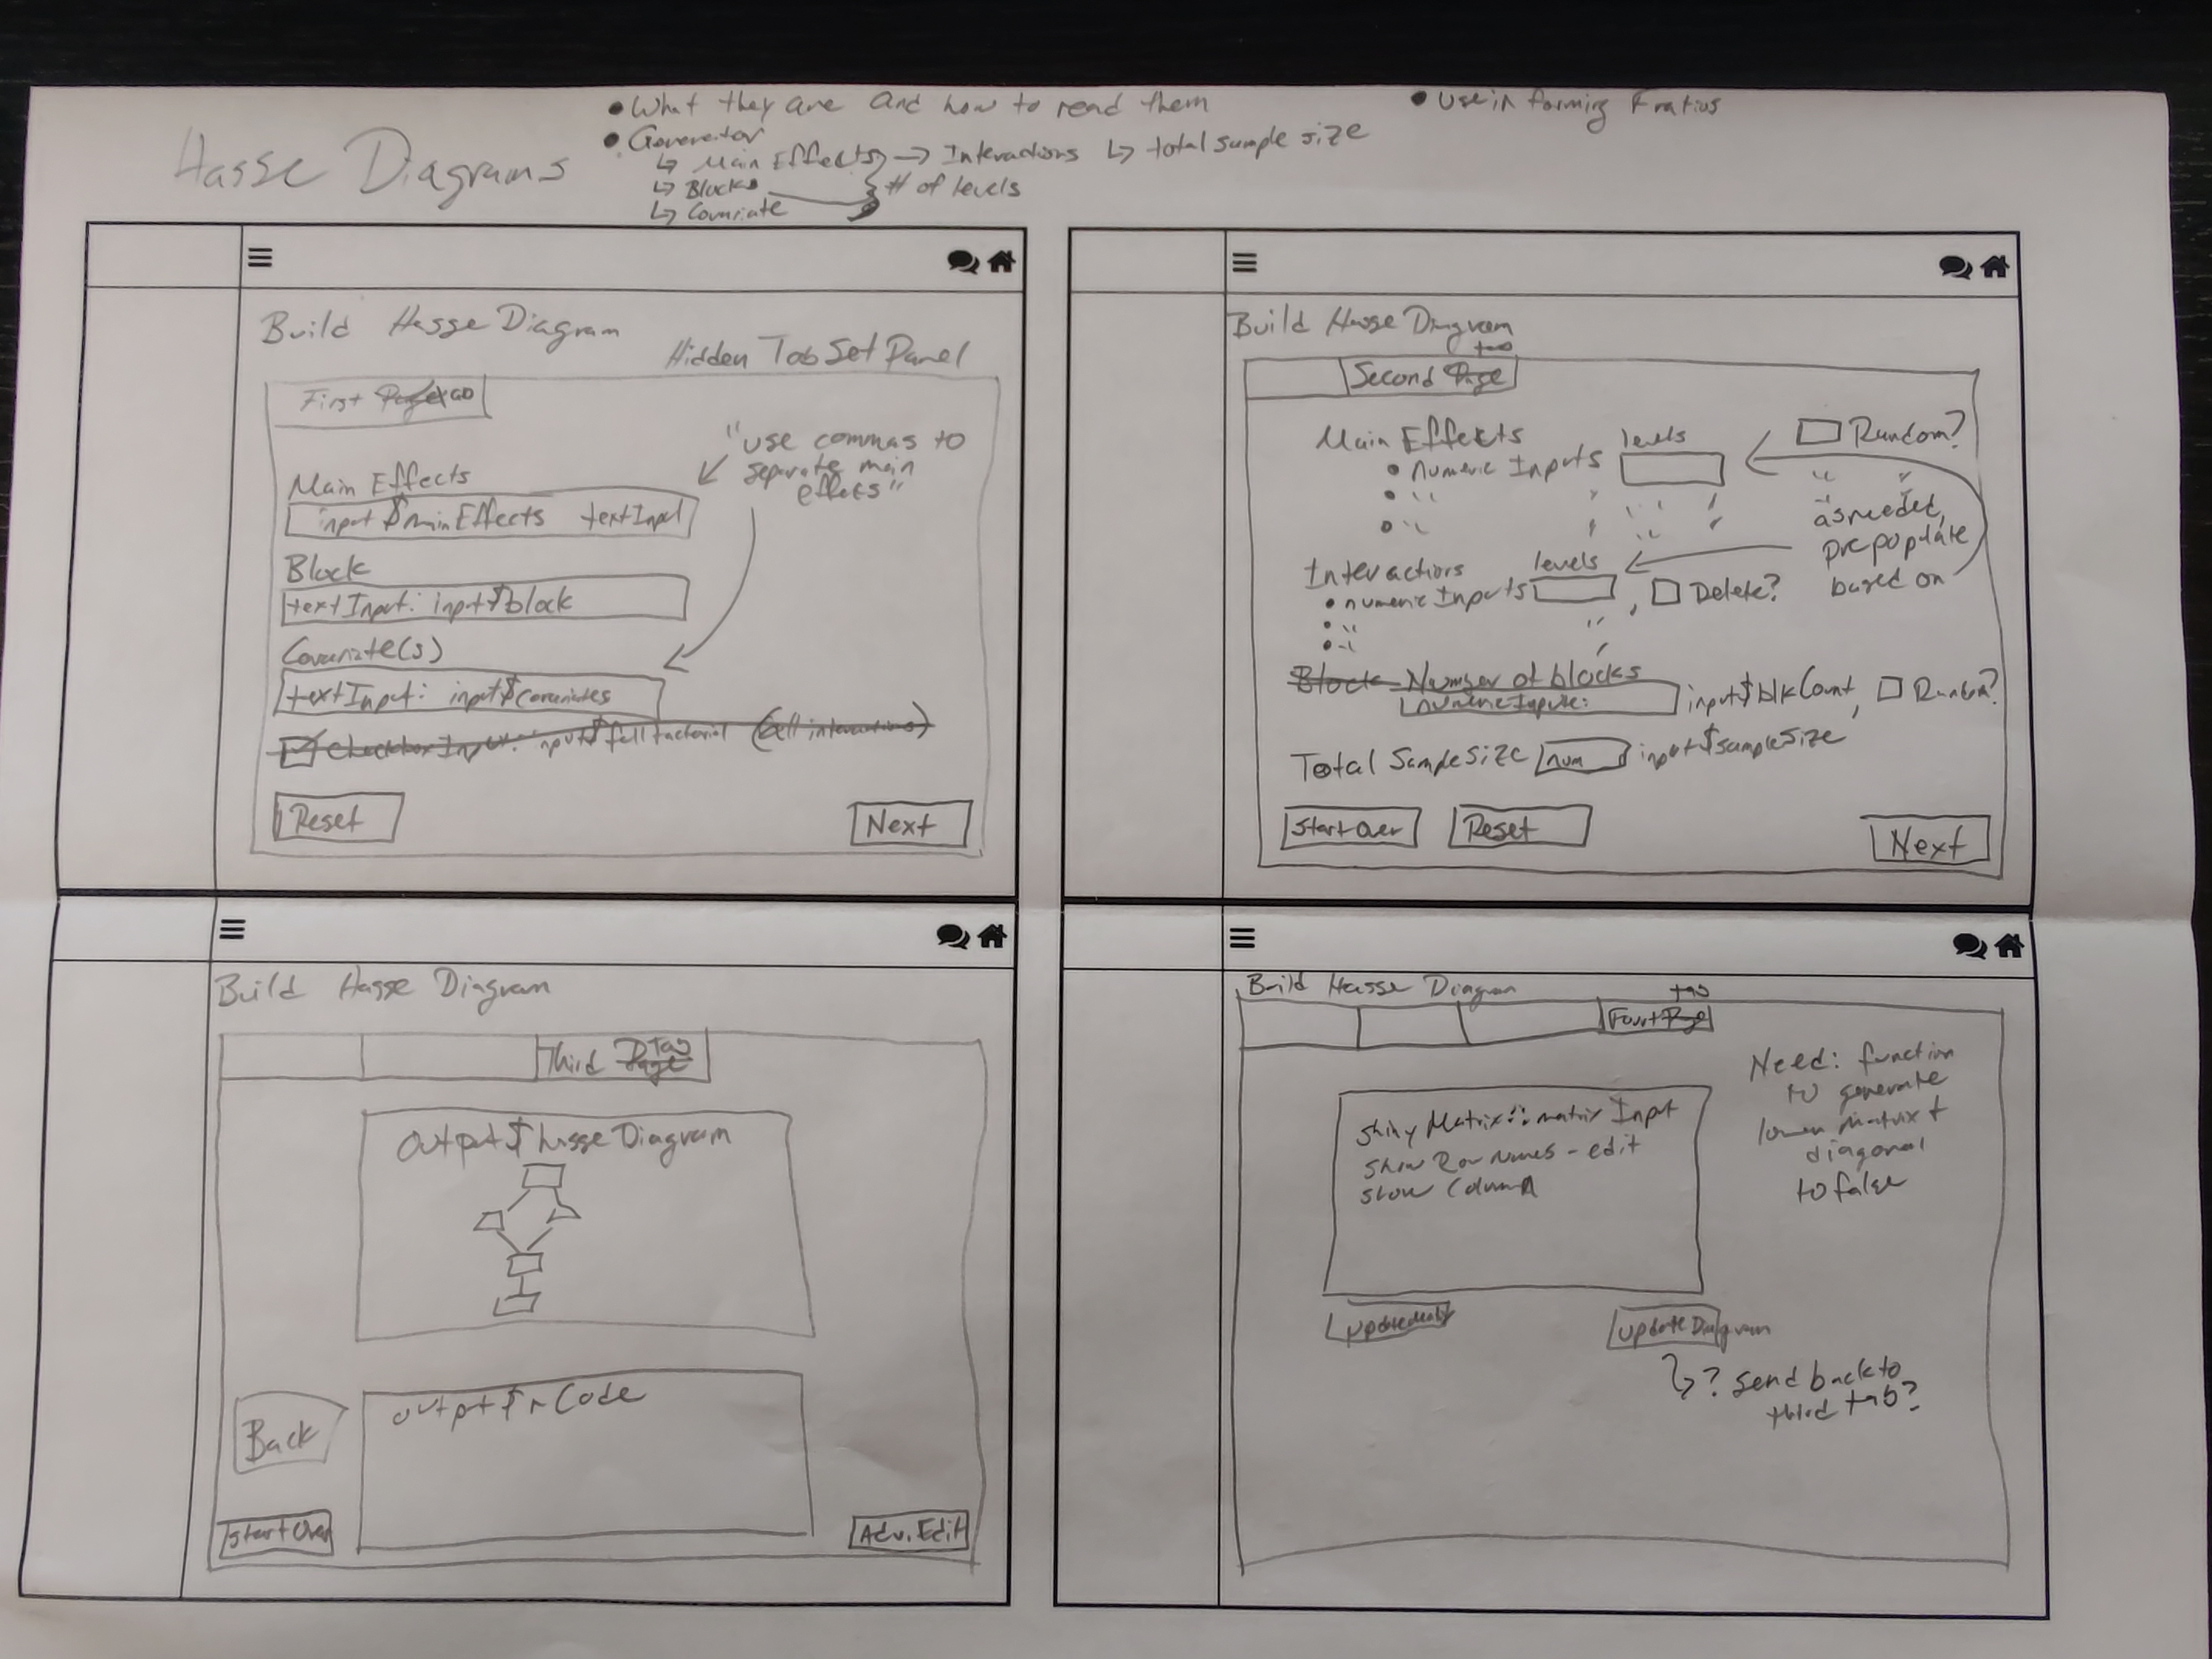 Hasse Diagrams
• What they are and how to read them
• Generator
↳ Main Effects → Interactions ↳ total sample size
↳ Blocks
# of levels
↳ Covariate
• Use in forming F ratios
Build Hasse Diagram
Hidden Tab Set Panel
First Page tab
"use commas to
separate main
effects"
Main Effects
input$mainEffects textInput
Block
textInput: input$block
Covariate(s)
textInput: input$covariates
checkboxInput: input$fullfactorial (all interactions)
Reset
Next
Build Hasse Diagram
tab
Second Page
Main Effects
levels
Random?
• numeric Inputs
• "
• "
as needed,
prepoptate
based on
Interactions
levels
• numeric Inputs
, Delete?
• "
• "
Block Number of blocks
numericInput:
input$blkCount, Random?
Total Sample Size num input$sampleSize
Start Over
Reset
Next
Build Hasse Diagram
Third Page Tab
Output$hasseDiagram
Back
output$rCode
Start Over
Adv. Edit
Build Hasse Diagram
tab
Fourt Page
Need: function
to generate
lower matrix +
diagonal
to false
shinyMatrix::matrixInput
show Row names - edit
show Column
Update Diagram
↳ ? send back to
third tab?